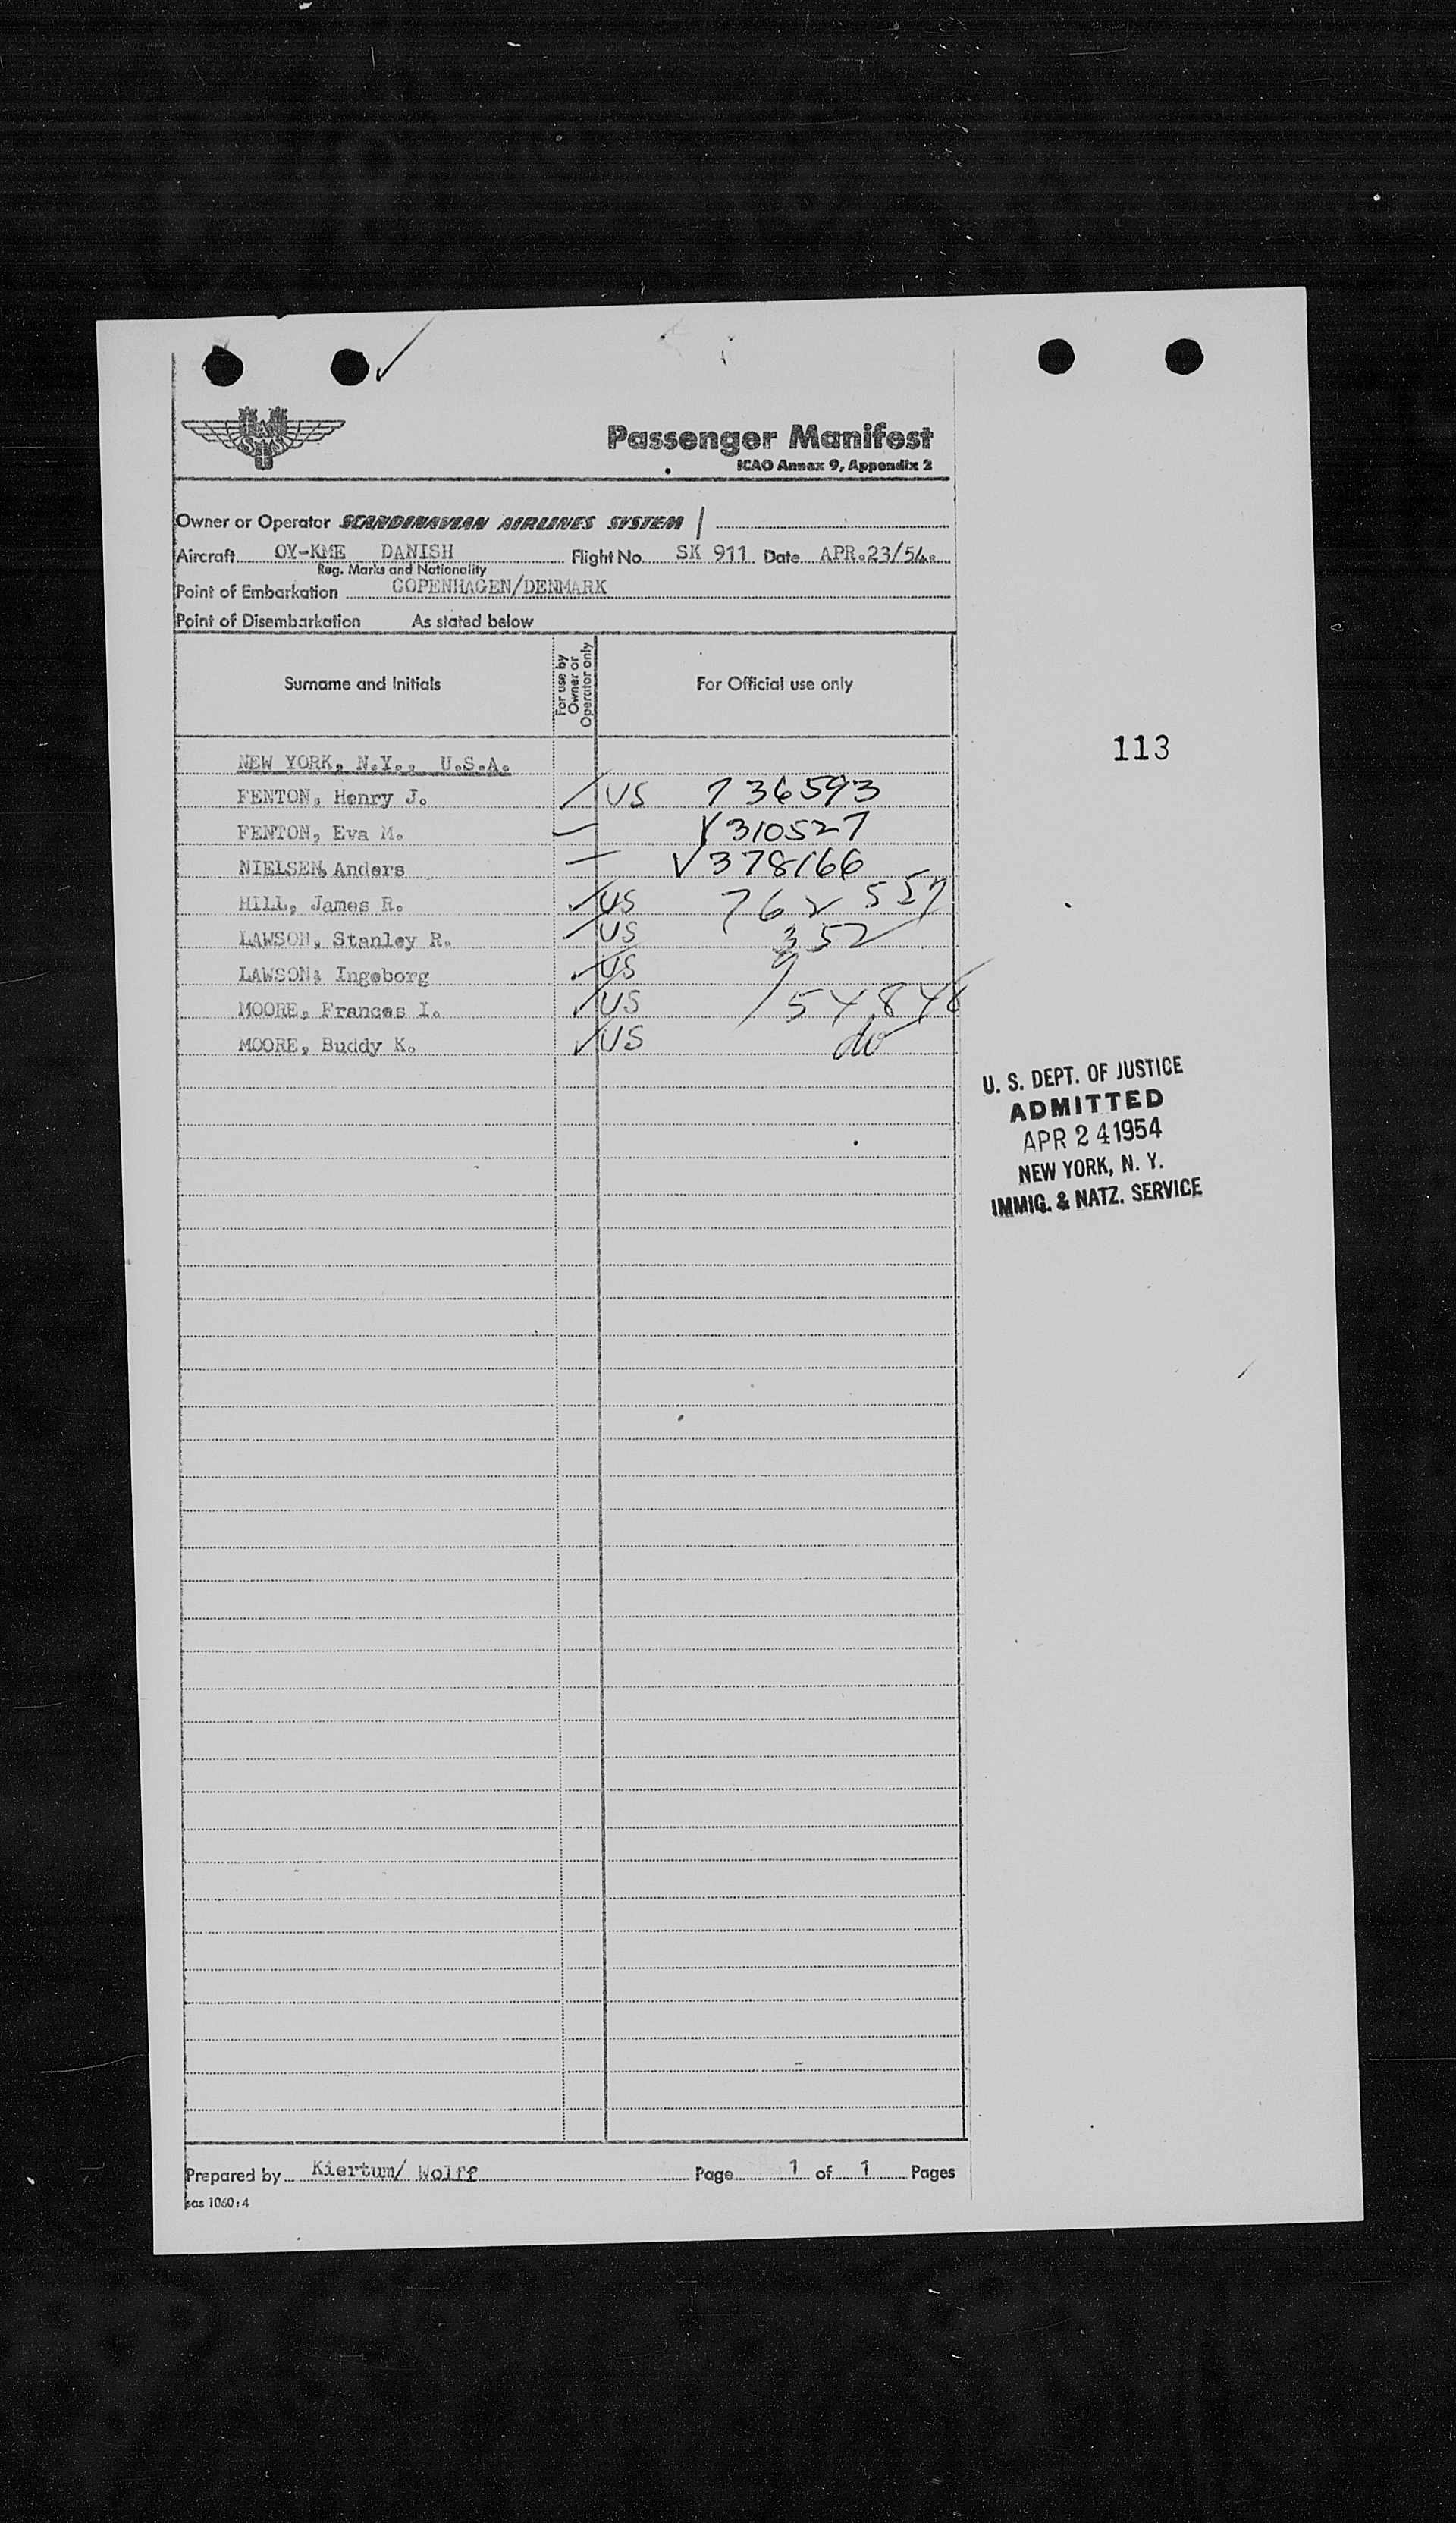 SAS
Passenger Manifest
ICAO Annex 9, Appendix 2
Owner or Operator SCANDINAVIAN AIRLINES SYSTEM /
Aircraft OY-KME DANISH Flight No. SK 911 Date APR.23/54.
Reg. Marks and Nationality
Point of Embarkation COPENHAGEN/DENMARK
Point of Disembarkation As stated below
Surname and Initials For use by Owner or Operator only For Official use only
113
NEW YORK, N.Y., U.S.A.
FENTON, Henry J. US 736593
FENTON, Eva M. V310527
NIELSEN, Anders V378166
HILL, James R. US 762 557
LAWSON, Stanley R. US 352
LAWSON, Ingeborg US
MOORE, Frances I. US 54848
MOORE, Buddy K. US do
U. S. DEPT. OF JUSTICE
ADMITTED
APR 24 1954
NEW YORK, N. Y.
IMMIG. & NATZ. SERVICE
Prepared by Kiertum/ Wolff Page 1 of 1 Pages
sas 1060:4